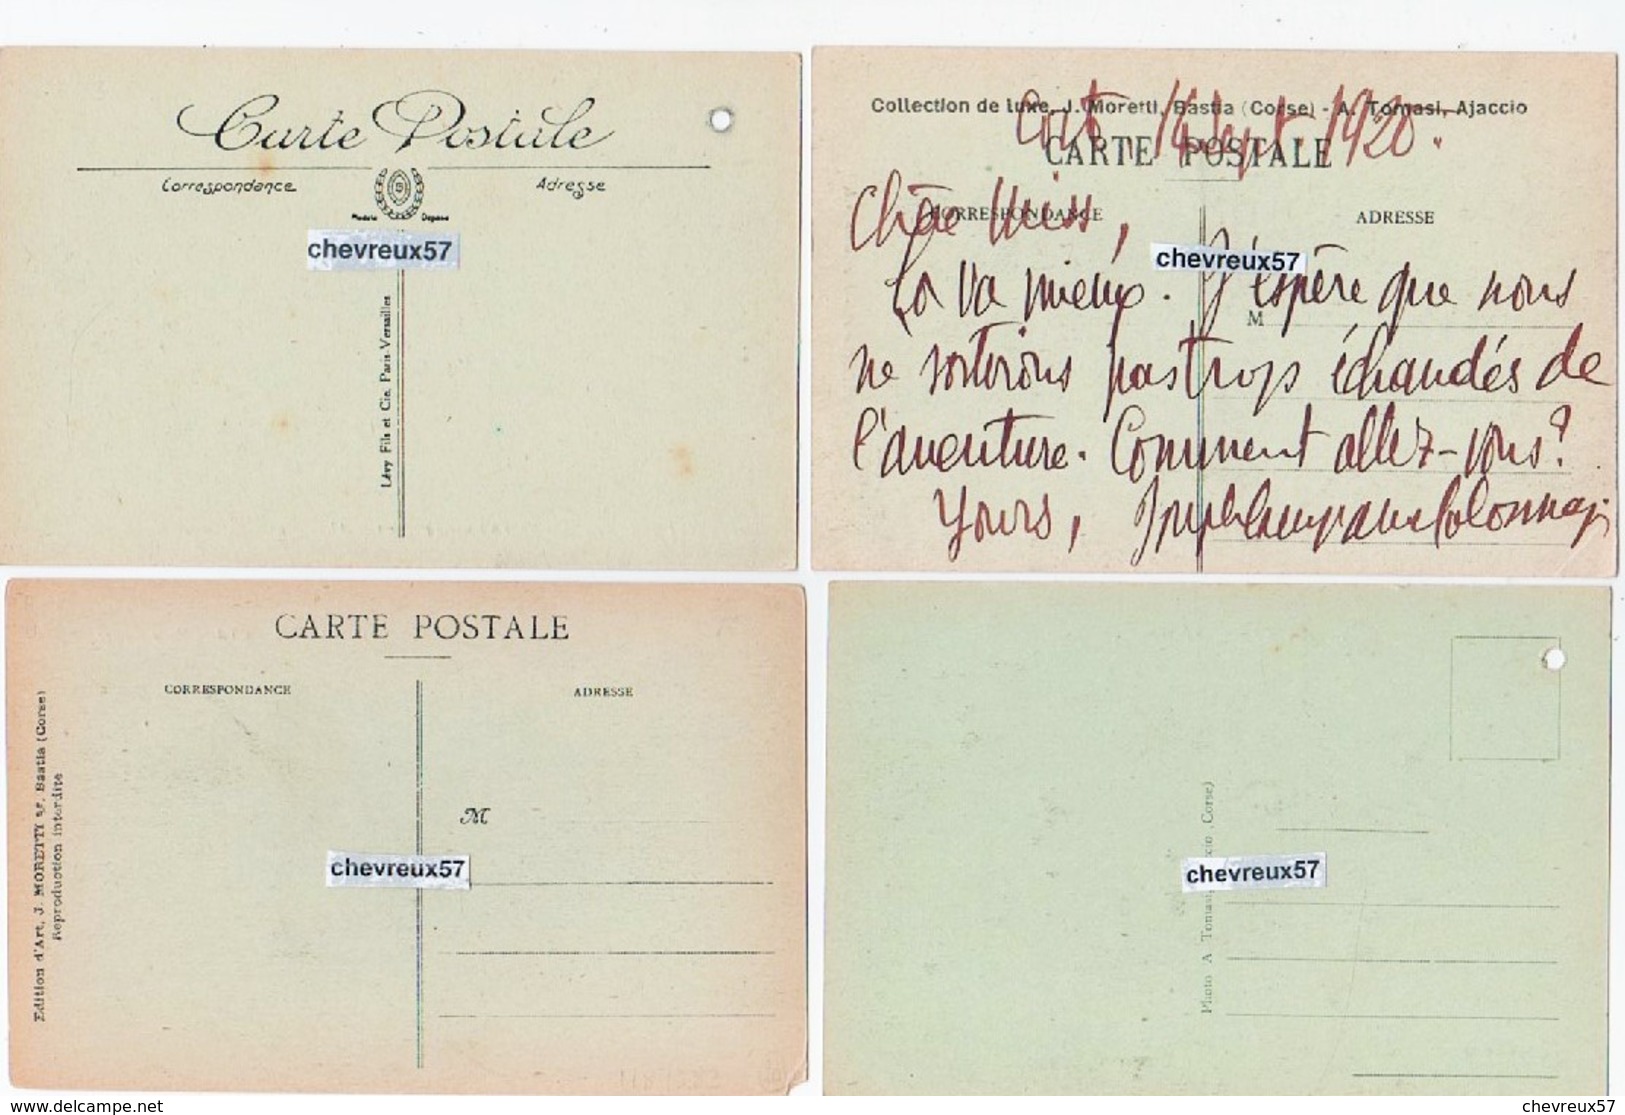 Carte Postale
Correspondance
Adresse
Modèle Déposé
chevreux57
Lévy Fils et Cie, Paris-Versailles
Collection de luxe, J. Moretti, Bastia (Corse) - A. Tomasi, Ajaccio
CARTE POSTALE
14 Sept. 1920.
CORRESPONDANCE
ADRESSE
Chère Miss,
chevreux57
Ça va mieux. J'espère que nous
M
ne sortirons pas trop échaudés de
l'aventure. Comment allez-vous?
Yours,
CARTE POSTALE
CORRESPONDANCE
ADRESSE
Edition d'Art, J. MORETTI Bastia (Corse)
Reproduction interdite
M
chevreux57
chevreux57
Photo A Tomasi, Corse)
www.delcampe.net
chevreux57